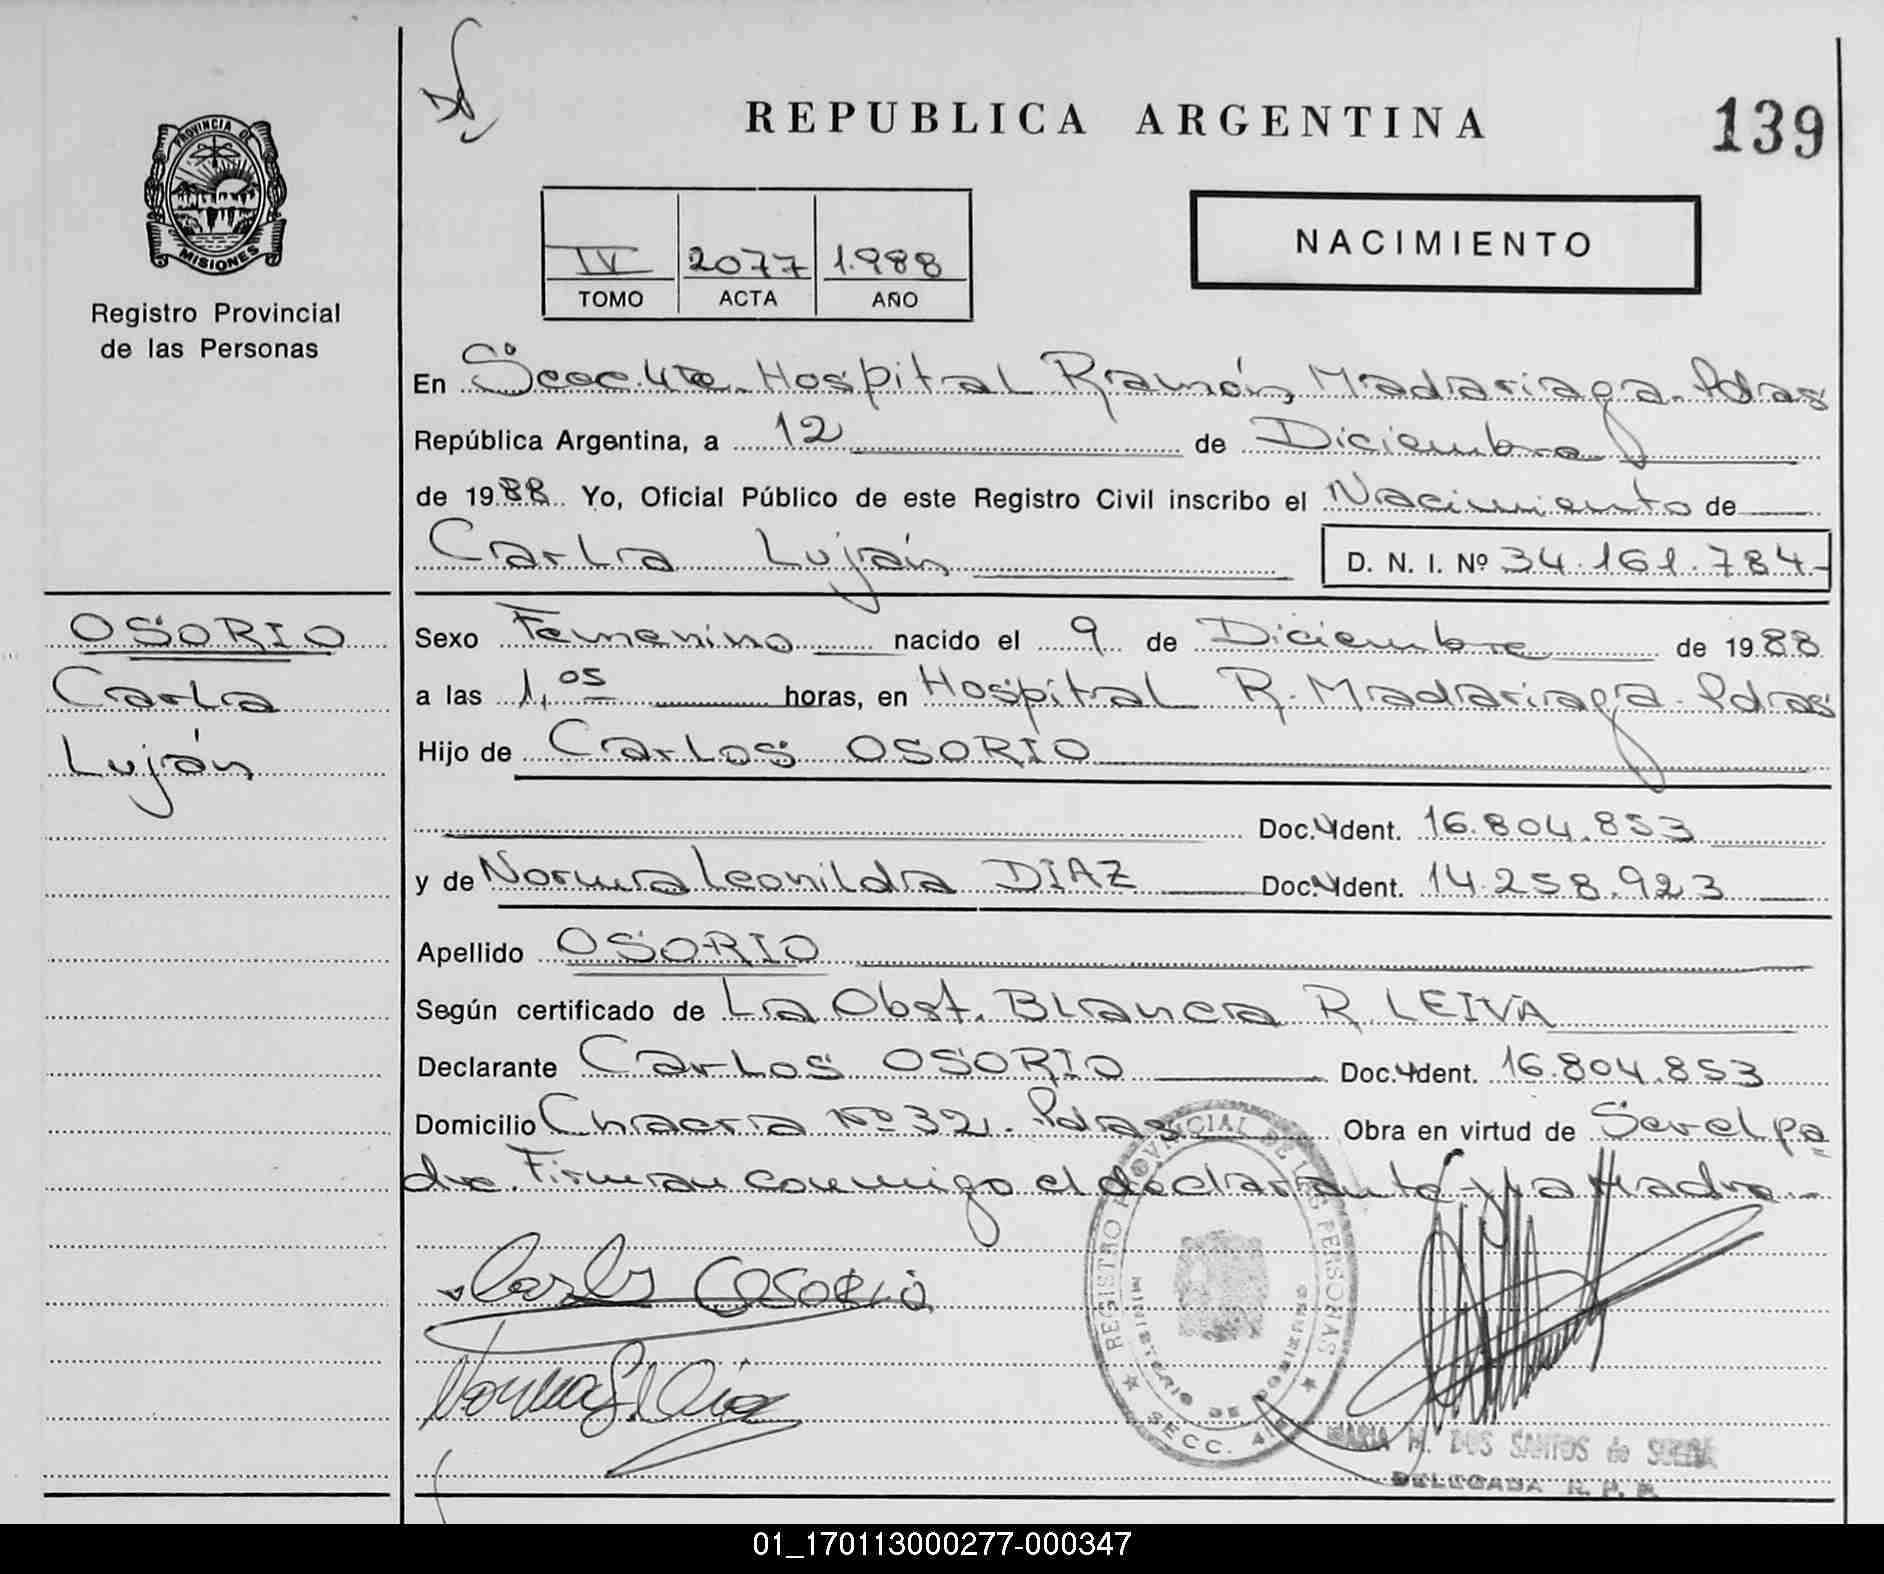 REPUBLICA ARGENTINA
139
PROVINCIA DE
MISIONES
Registro Provincial
de las Personas
IV 2077 1.988
TOMO ACTA AÑO
NACIMIENTO
En Secc. 4ta. Hospital Ramón Madariaga - Pdas
República Argentina, a 12 de Diciembre
de 1988. Yo, Oficial Público de este Registro Civil inscribo el Nacimiento de
Carla Luján
D. N. I. Nº 34.161.784-
OSORIO
Carla
Luján
Sexo Femenino nacido el 9 de Diciembre de 1988
a las 1,05 horas, en Hospital R. Madariaga - Pdas
Hijo de Carlos OSORIO
Doc. Ident. 16.804.853
y de Norma Leonilda DIAZ Doc. Ident. 14.258.923
Apellido OSORIO
Según certificado de La Obst. Blanca R. LEIVA
Declarante Carlos OSORIO Doc. Ident. 16.804.853
Domicilio Chacra Nº 32. Pdas Obra en virtud de Ser el pa
dre. Firman conmigo el declarante y la Madre -
Carlos OSORIO
Norma L Diaz
REGISTRO PROVINCIAL DE LAS PERSONAS
MINISTERIO DE GOBIERNO
SECC. 4
MARIA M. DOS SANTOS de
DELEGADA R. P. P.
01_170113000277-000347